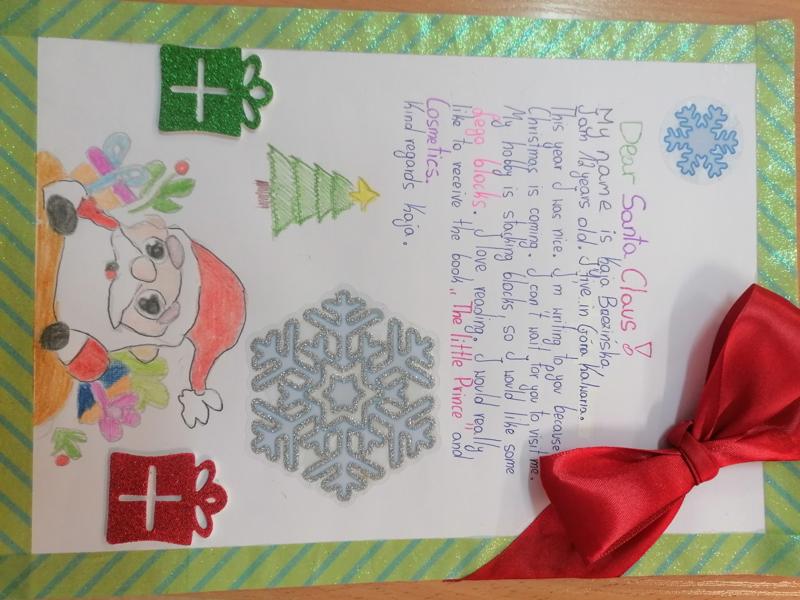 Dear Santa Claus!
My name is Kaja Brezińska.
I am 12 years old. I live in Góra Kalwaria.
This year I was nice. I'm writing to you because
Christmas is coming. I can't wait for you to visit me.
My hobby is stacking blocks so I would like some
lego blocks. I love reading. I would really
like to receive the book "The little Prince" and
Cosmetics.
Kind regards Kaja.